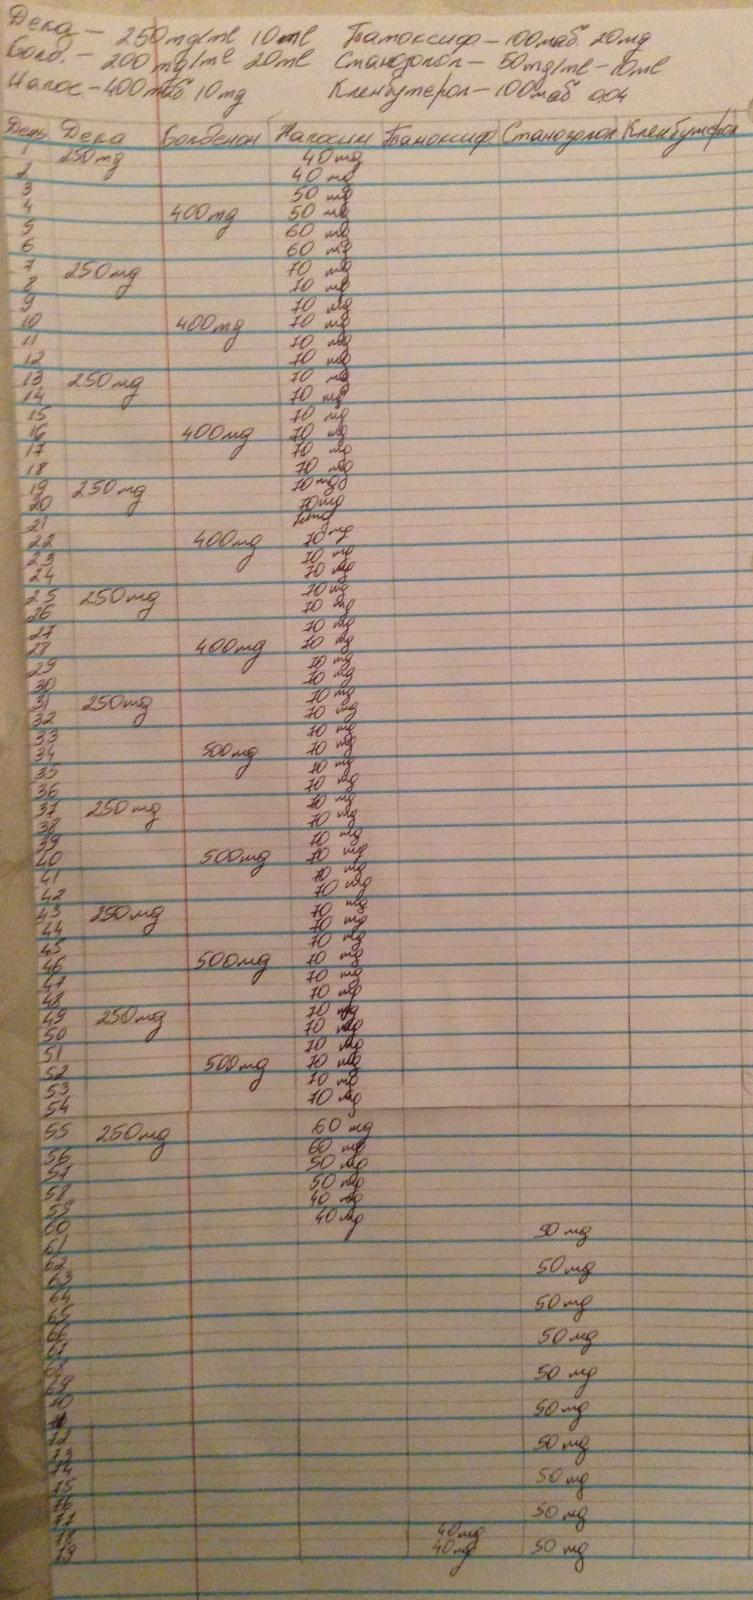 Дека — 250mg/ml 10ml Тамоксиф — 100таб. 20mg
Болд. — 200mg/ml 20ml Станозолол — 50mg/ml — 10ml
Напос — 400таб 10mg Кленбутерол — 100таб 0.04
День Дека Болденон Напосим Тамоксиф Станозолол Кленбутерол
1 250mg 40mg
2 40mg
3 50mg
4 400mg 50mg
5 60mg
6 60mg
7 250mg 70mg
8 70mg
9 70mg
10 400mg 70mg
11 70mg
12 70mg
13 250mg 70mg
14 70mg
15 70mg
16 400mg 70mg
17 70mg
18 70mg
19 250mg 70mg
20 70mg
21 70mg
22 400mg 70mg
23 70mg
24 70mg
25 250mg 70mg
26 70mg
27 70mg
28 400mg 70mg
29 70mg
30 70mg
31 250mg 70mg
32 70mg
33 70mg
34 500mg 70mg
35 70mg
36 70mg
37 250mg 70mg
38 70mg
39 70mg
40 500mg 70mg
41 70mg
42 70mg
43 250mg 70mg
44 70mg
45 70mg
46 500mg 70mg
47 70mg
48 70mg
49 250mg 70mg
50 70mg
51 70mg
52 500mg 70mg
53 70mg
54 70mg
55 250mg 60mg
56 60mg
57 50mg
58 50mg
59 40mg
60 40mg
61 50mg
62
63 50mg
64
65 50mg
66
67 50mg
68
69 50mg
70
71 50mg
72
73 50mg
74
75 50mg
76
77 50mg
78 40mg
79 40mg 50mg